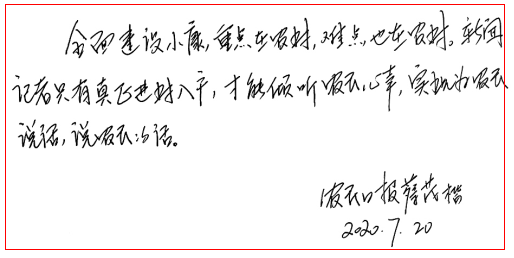 全面建设小康,重点在农村,难点也在农村。新闻
记者只有真正进村入户,才能倾听农民心声,实现为农民
说话,说农民的话。
农民日报蒋茂楷
2020.7.20